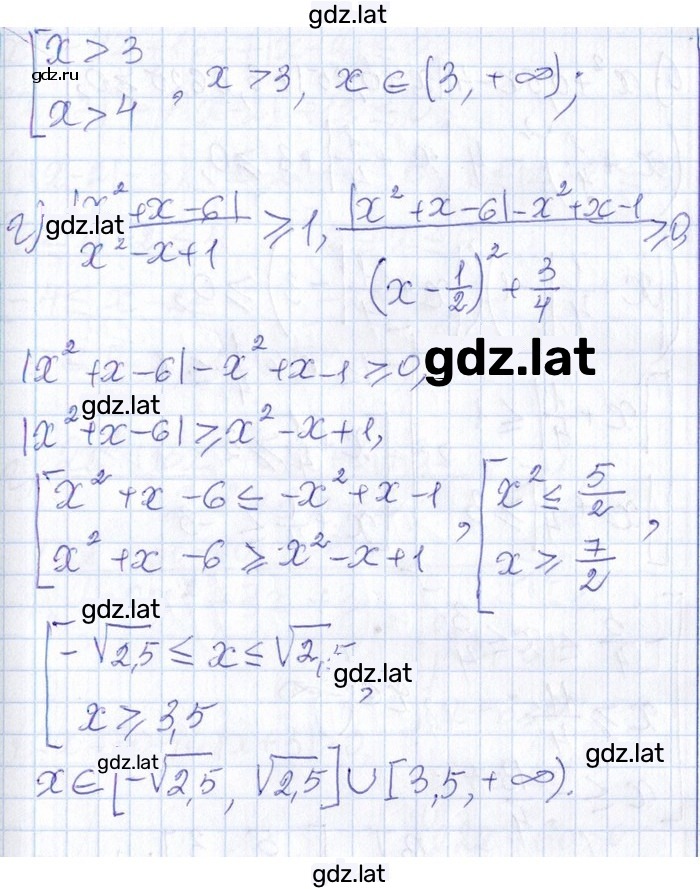 gdz.lat
[ x > 3
gdz.ru
x > 4 , x > 3, x ∈ (3, +∞);
г) |x² + x - 6| / x² - x + 1 ⩾ 1, |x² + x - 6| - x² + x - 1 / (x - 1/2)² + 3/4 ⩾ 0,
gdz.lat
|x² + x - 6| - x² + x - 1 ⩾ 0,
gdz.lat
gdz.lat
|x² + x - 6| ⩾ x² - x + 1,
[ x² + x - 6 ⩽ -x² + x - 1 , [ x² ⩽ 5/2 ,
x² + x - 6 ⩾ x² - x + 1 x ⩾ 7/2
gdz.lat
[ -√2,5 ⩽ x ⩽ √2,5 ,
gdz.lat
x ⩾ 3,5
gdz.lat
gdz.lat
x ∈ [-√2,5, √2,5] ∪ [3,5, +∞).
gdz.lat